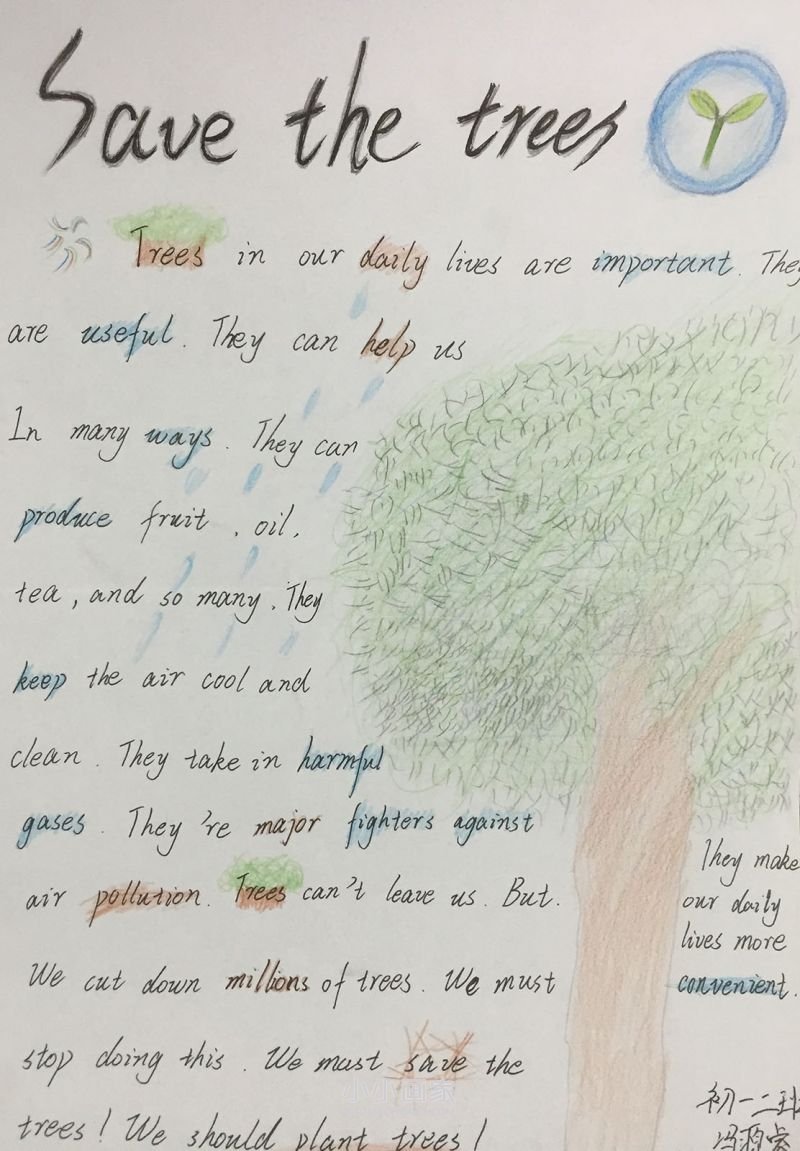 Save the trees
Trees in our daily lives are important. They
are useful. They can help us
In many ways. They can
produce fruit, oil,
tea, and so many. They
keep the air cool and
clean. They take in harmful
gases. They're major fighters against
air pollution. Trees can't leave us. But.
We cut down millions of trees. We must
stop doing this. We must save the
trees! We should plant trees!
They make
our daily
lives more
convenient.
初一二班
小小画家